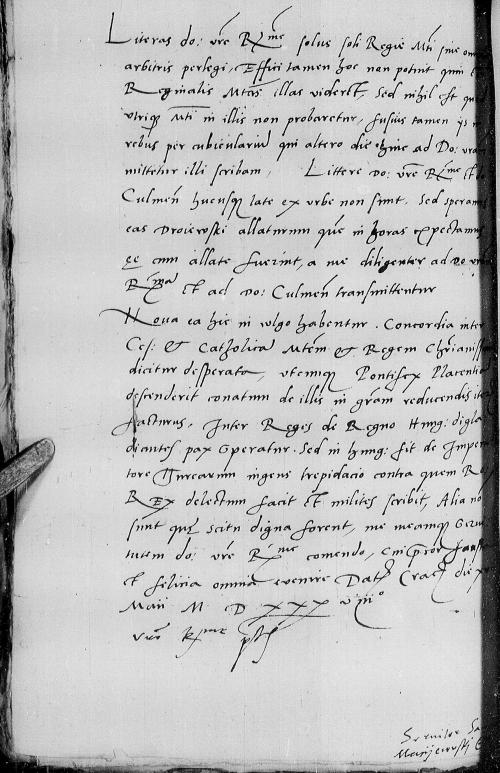 Literas do: vre R:me solus soli Regie Mti sine om
arbitris perlegi, Effici tamen hoc non potuit quin
Reginalis Mtas illas viderit, Sed nihil est quod
utriqz Mti in illis non probaretur, fusius tamen ijs
rebus per cubiculariu qui altero die hinc ad Do: vram
mittetur illi scribam, Littere Do: vre R:me et do
Culmen hucusqz late ex urbe non sunt, Sed speramus
eas Droiewski allaturum que in horas expectamus
ee cum allate fuerint, a me diligenter ad Do
R:ma Et ad Do: Culmen transmittentur
Nova ea hic in vulgo habentur. Concordia inter
Ces: & Catholica Mtem & Regem Chrianiss
dicitur desperata, utcunqz Pontifex Placentia
descenderit conatum de illis in gram reducendis
facturus, Inter Reges de Regno Hung: digla
diantes pax speratur. Sed in hung: fit de Impera
tore Turcarum ingens trepidacio contra quem Rex
Rex delectum facit Et milites scribit, Alia no
sunt que scitu digna forent, me meamqz servi
tutem do: vre R:me comendo, Cui pror faust
Et felicia omnia evenire Dat Crac die x
Maii M D XXX viiio
Vre R:me
Servitor
Maciejewski